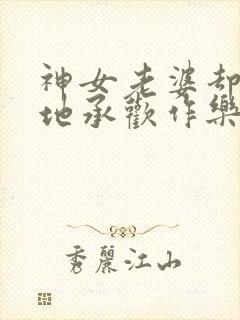 神女老婆却
地承歡作樂
秀麗江山